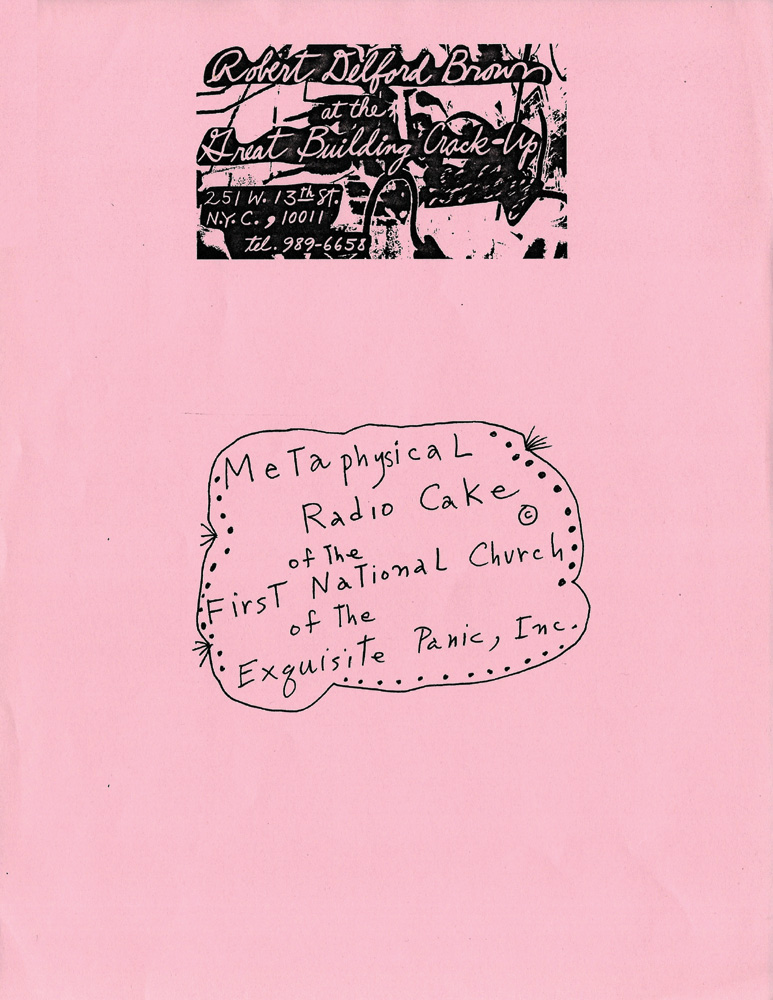 Robert Delford Brown
at the
Great Building Crack-Up
251 W. 13th St.
N.Y.C., 10011
tel. 989-6658
MeTaphysicaL
Radio Cake ©
of The
FirsT NaTionaL Church
of The
Exquisite Panic, Inc.